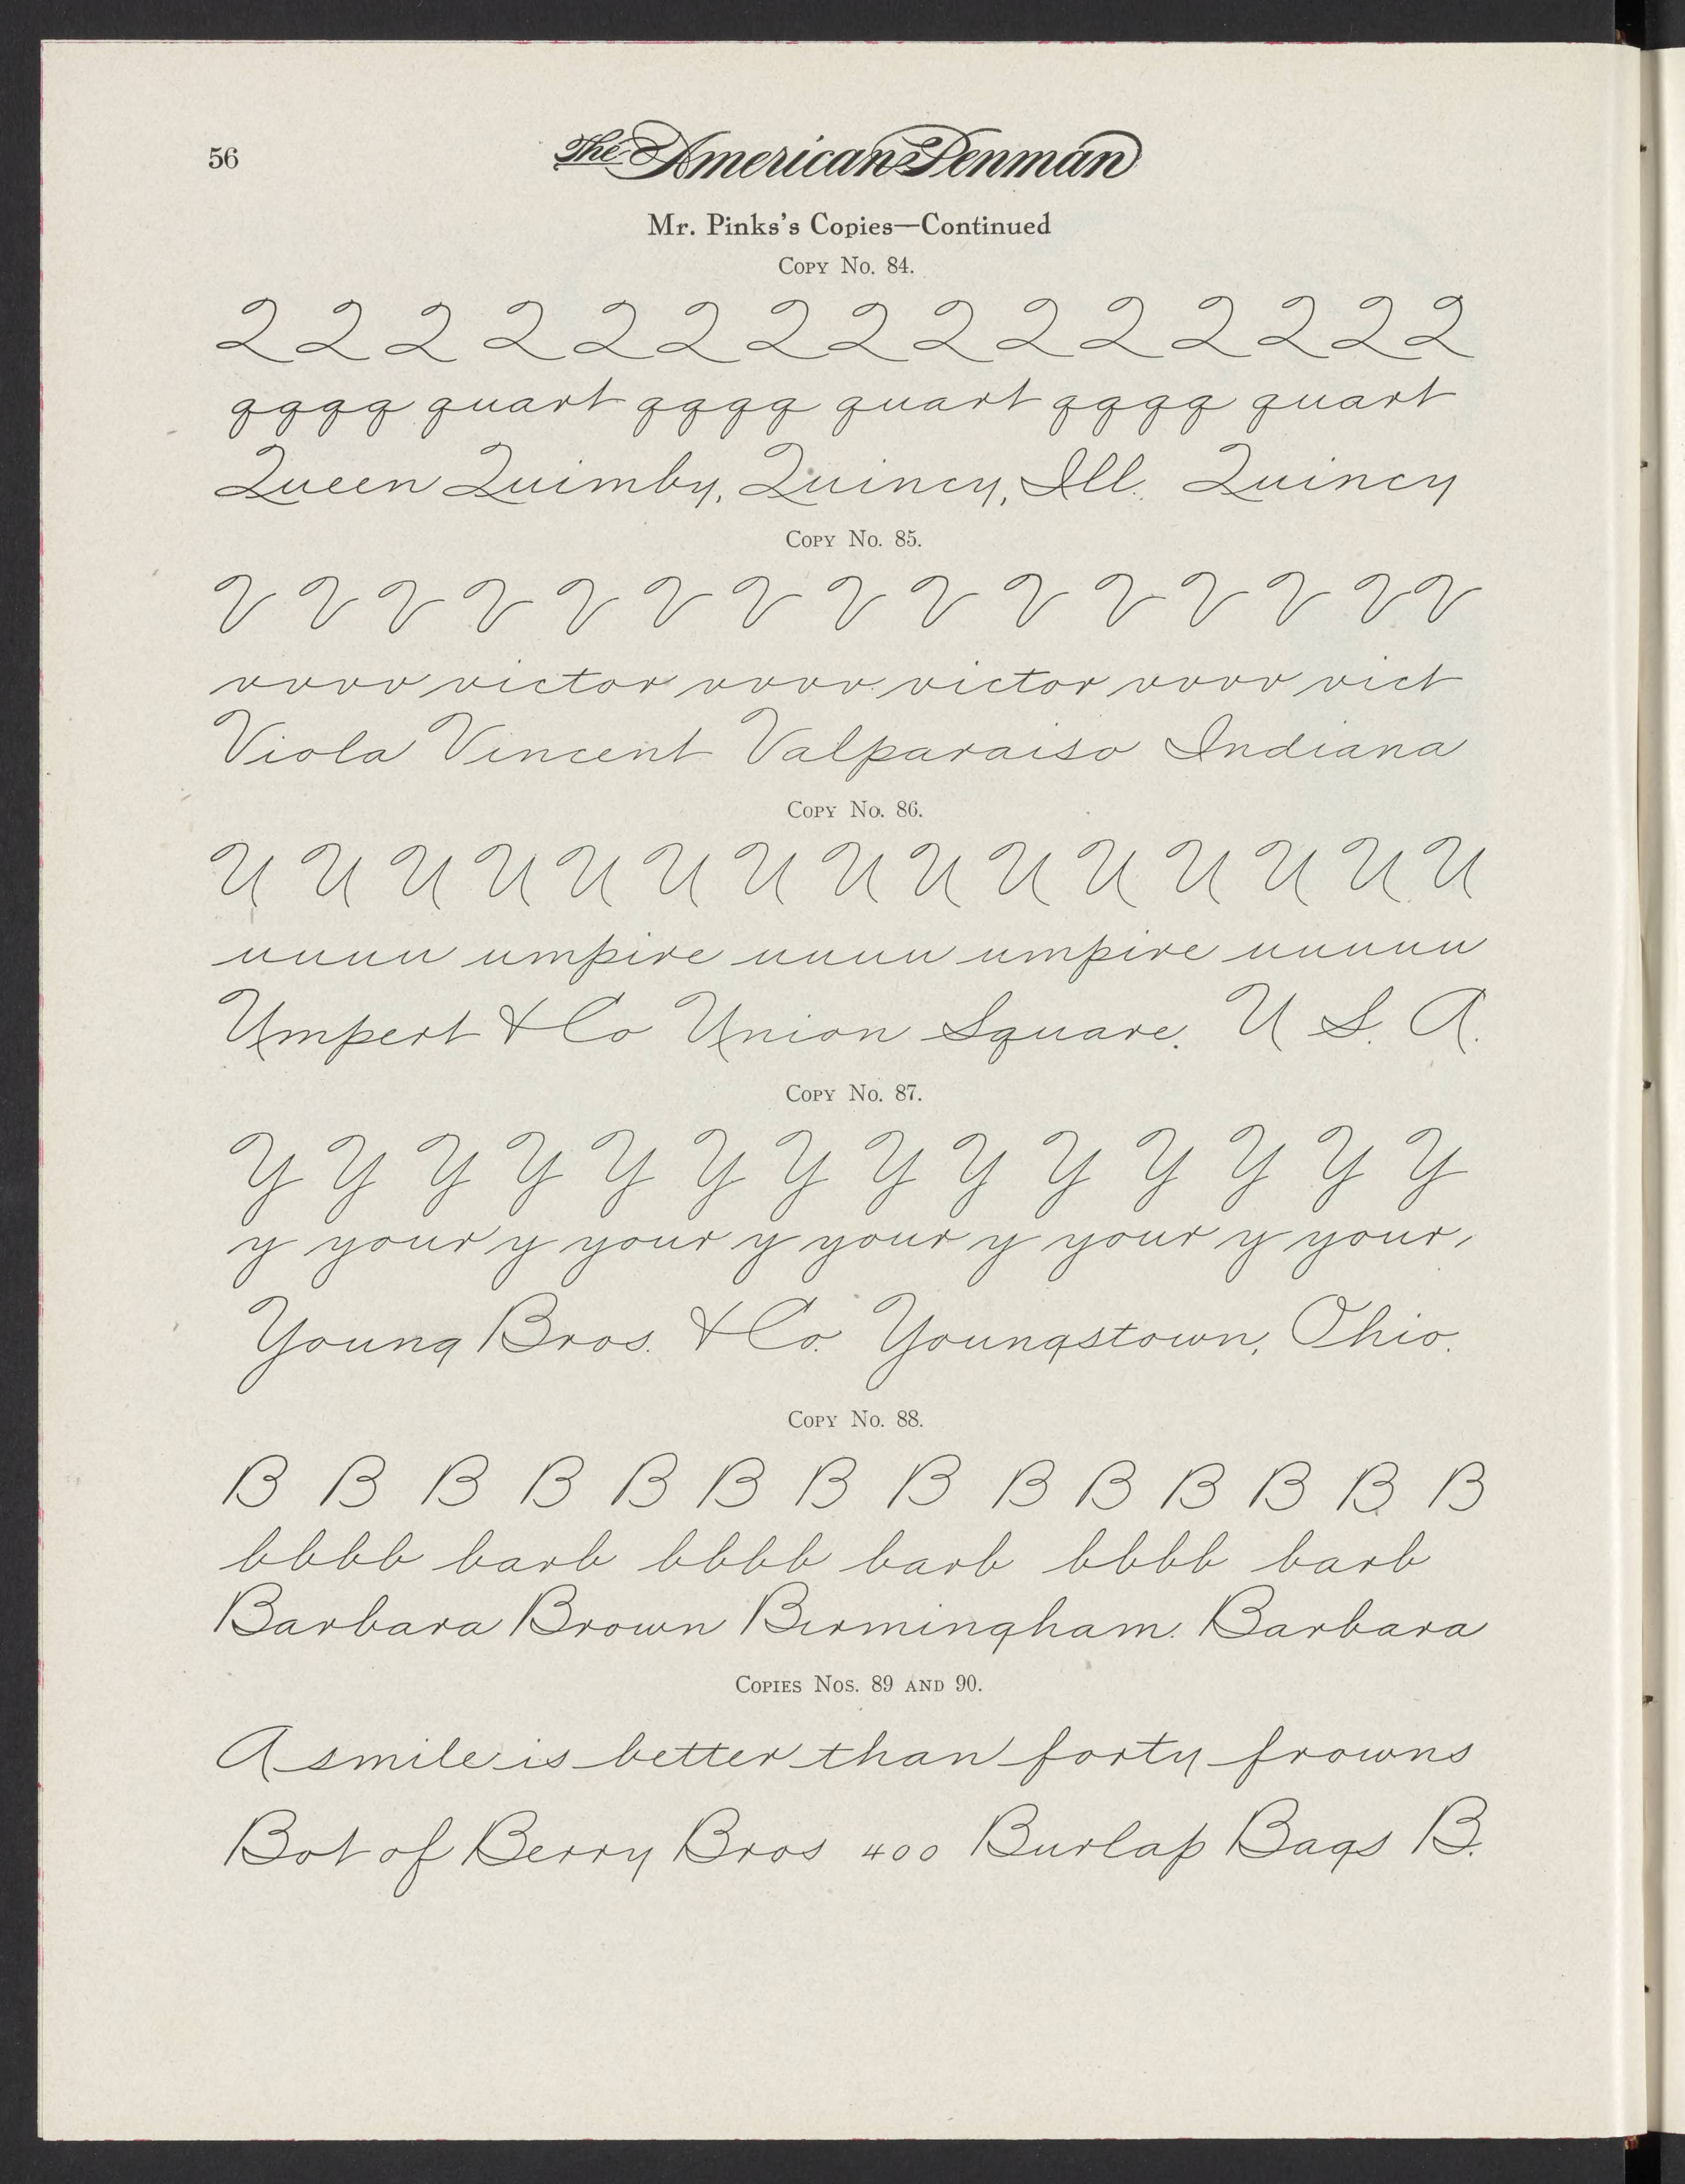 56
The American Penman
Mr. Pinks's Copies—Continued
Copy No. 84.
Q Q Q Q Q Q Q Q Q Q Q Q Q Q Q
qqqq quart qqqq quart qqqq quart
Queen Quimby, Quincy, Ill. Quincy
Copy No. 85.
V V V V V V V V V V V V V V V
vvvv victor vvvv victor vvvv vict
Viola Vincent Valparaiso Indiana
Copy No. 86.
U U U U U U U U U U U U U U U
uuuu umpire uuuu umpire uuuuu
Umpert & Co Union Square. U S. A.
Copy No. 87.
Y Y Y Y Y Y Y Y Y Y Y Y Y Y
y your y your y your y your y your,
Young Bros. & Co. Youngstown, Ohio.
Copy No. 88.
B B B B B B B B B B B B B B
bbbb barb bbbb barb bbbb barb
Barbara Brown Birmingham. Barbara
Copies Nos. 89 and 90.
A smile is better than forty frowns
Bot of Berry Bros 400 Burlap Bags B.